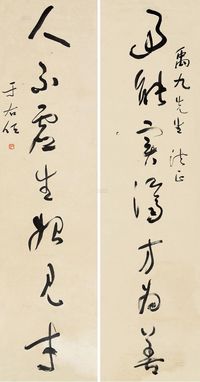 禹九先生 法正
能實濟方為善
人不虛生始見才
于右任